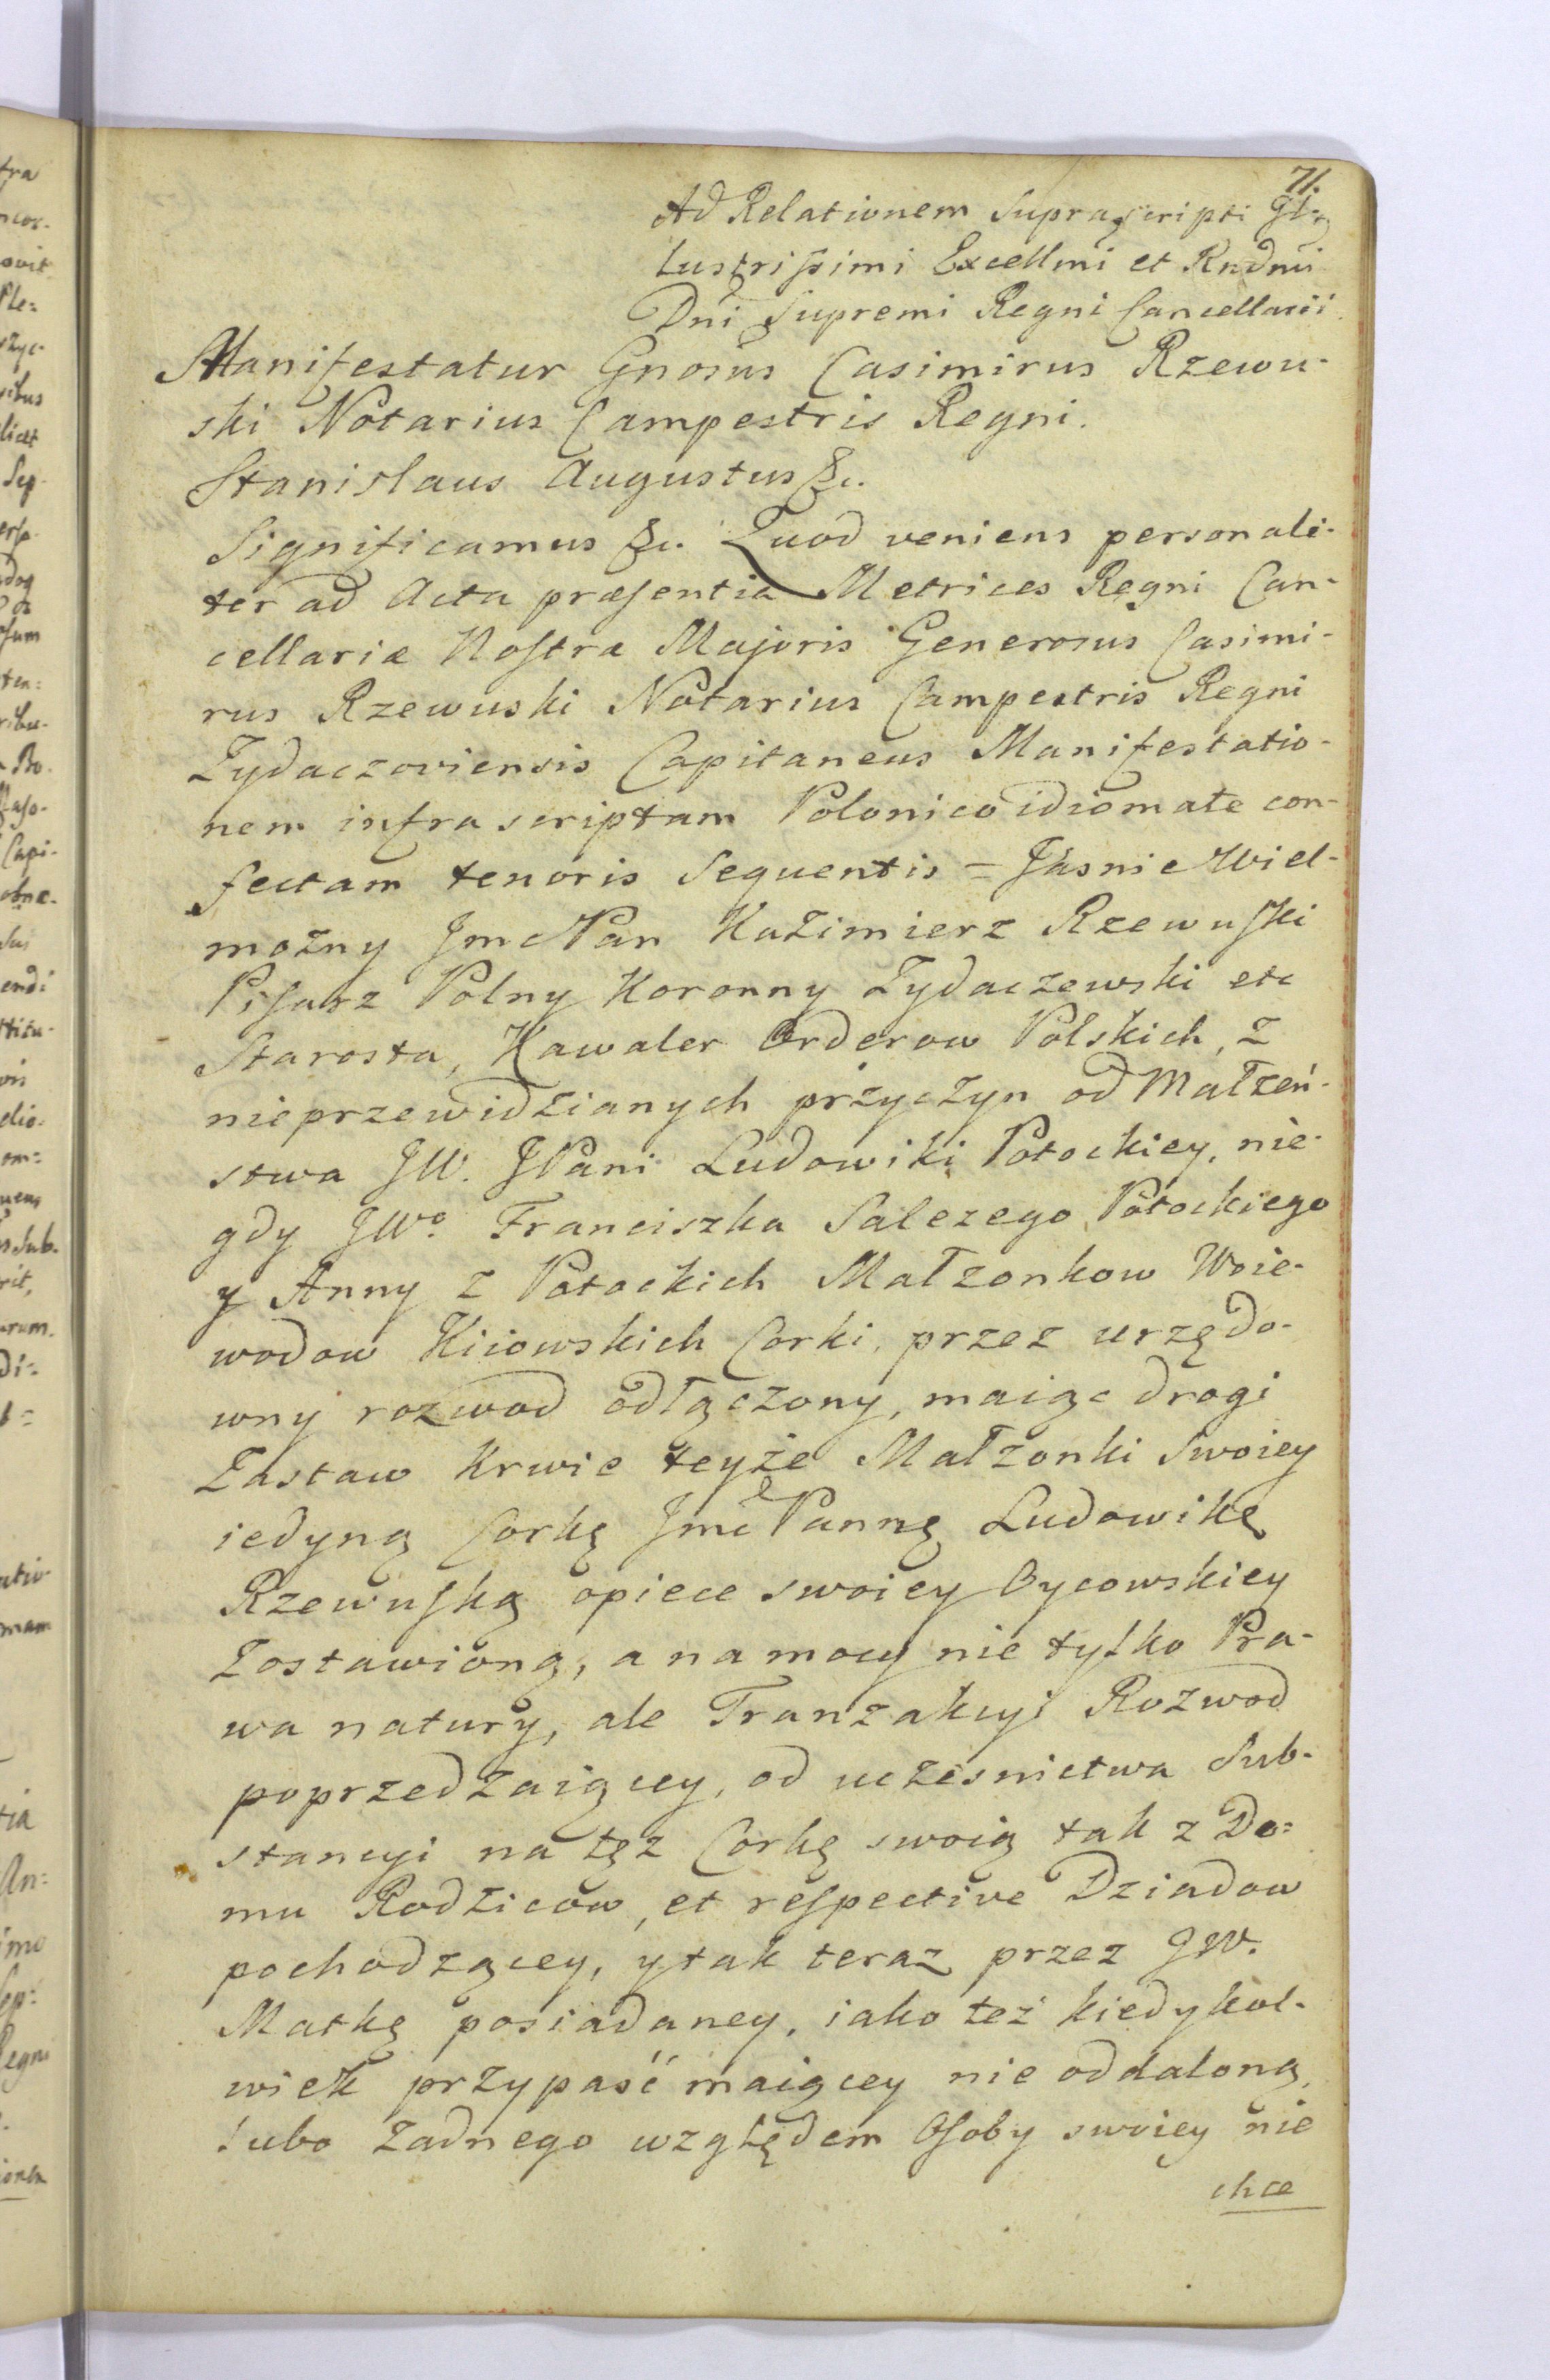 71.
Ad Relationem Supra scripti Il-
lustrissimi Excellmi et Rndmi
Dni Supremi Regni Cancellarii.
Manifestatur Gnosus Casimirus Rzewu-
ski Notarius Campestris Regni.
Stanislaus Augustus &c.
Significamus &c. Quod veniens personali-
ter ad Acta præsentia Metrices Regni Can-
cellariæ Nostræ Majoris Generosus Casimi-
rus Rzewuski Notarius Campestris Regni
Zydaczoviensis Capitaneus Manifestatio-
nem infra scriptam Polonico idiomate con-
fectam tenoris sequentis = Jasnie Wiel-
możny Jmc Pan Kaźimierz Rzewuski
Pisarz Polny Koronny Zydaczewski etc
Starosta, Kawaler Orderow Polskich, z
nieprzewidzianych przyczyn od Małżeń-
stwa JW. JPani Ludowiki Potockiey, nie-
gdy JWo. Franciszka Salezego Potockiego
y Anny z Potockich Małzonkow Woie-
wodow Kiiowskich Corki, przez urzędo-
wny rozwod odłączony, maiąc drogi
Zastaw Krwie teyże Małzonki Swoiey
iedyną Corkę Jmć Pannę Ludowikę
Rzewuską opiece swoiey Oycowskiey
Zostawioną, a na mocy nie tylko Pra-
wa natury, ale Tranzakcyi Rozwod
poprzedzaiącey, od uczesnictwa Sub-
stancyi na tęż Corkę swoią tak z Do-
mu Rodzicow, et respective Dziadow
pochodzącey, y tak teraz przez JW.
Matkę posiadaney, iako też kiedykol-
wiek przypaść maiącey nie oddaloną,
lubo Zadnego względem Osoby swoiey nie
chce